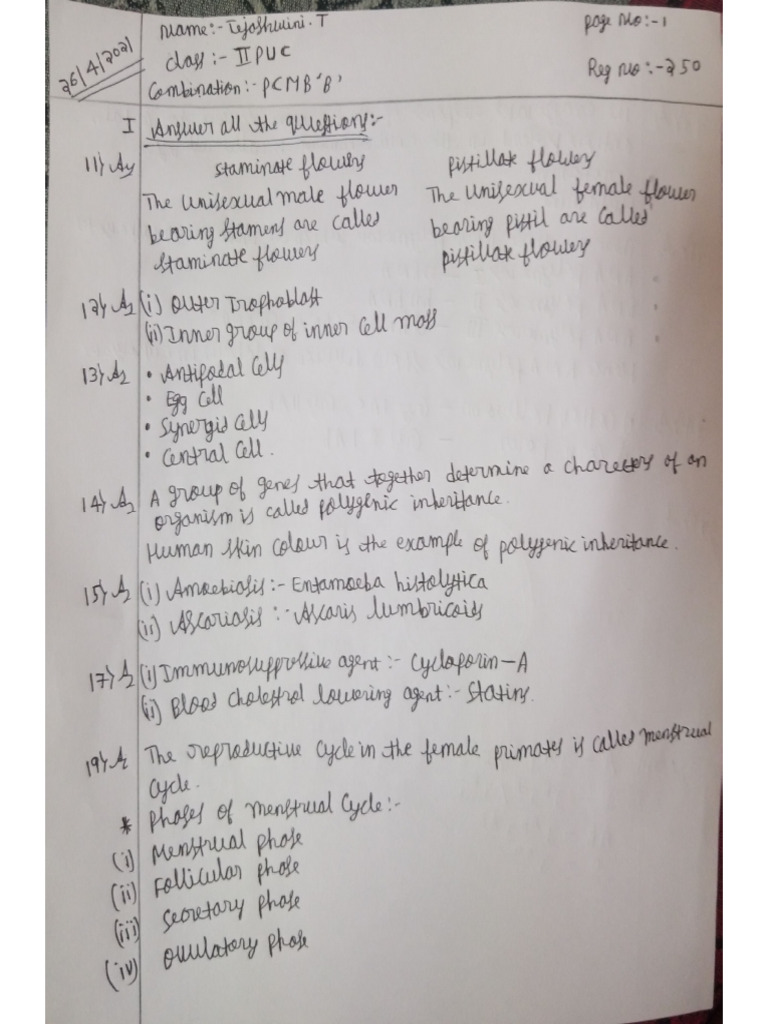 26/4/2021
Name:- Tejoshwini.T
Page No:-1
Class :- II PUC
Reg No:-250
Combination:- PCMB 'B'
I Answer all the questions:-
11) A
Staminate flowers
Pistillate flowers
The Unisexual male flower
The Unisexual female flower
bearing stamens are called
bearing pistil are called
staminate flowers
pistillate flowers
12) A (i) Outer Trophoblast
(ii) Inner group of inner cell mass
13) A • Antipodal cells
• Egg cell
• Synergid cells
• Central cell.
14) A A group of genes that together determine a characters of an
organism is called polygenic inheritance.
Human skin colour is the example of polygenic inheritance.
15) A (i) Amoebiasis:- Entamoeba histolytica
(ii) Ascariasis :- Ascaris lumbricoids
17) A (i) Immunosuppressive agent :- Cyclosporin-A
(ii) Blood Cholestrol lowering agent:- Statins.
19) A The reproductive cycle in the female primates is called menstrual
cycle.
* Phases of menstrual cycle:-
(i) Menstrual phase
(ii) Follicular phase
(iii) Secretary phase
(iv) Ovulatory phase